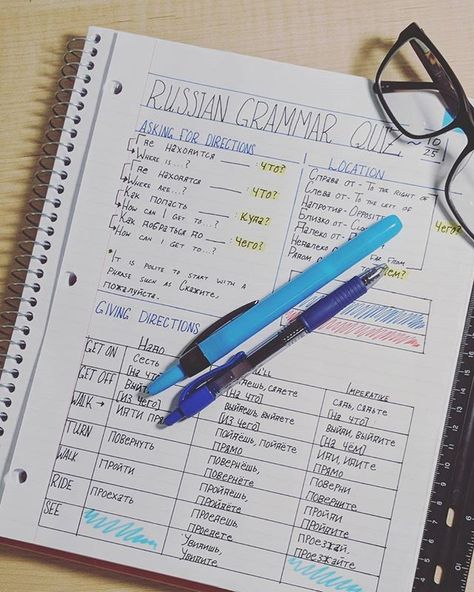 RUSSIAN GRAMMAR QUIZ ~ 10/25
ASKING FOR DIRECTIONS
Где находится ____ ЧТО?
WHERE IS...?
Где находятся ____ ЧТО?
WHERE ARE...?
Как попасть ____ КУДА?
HOW CAN I GET TO...?
Как добраться до ____ ЧЕГО?
HOW CAN I GET TO...?
IT IS POLITE TO START WITH A
PHRASE SUCH AS Скажите,
пожалуйста.
LOCATION
Справа от - TO THE RIGHT OF
Слева от - TO THE LEFT OF
Напротив - OPPOSITE
Близко от
Далеко от
Недалеко FROM
Рядом
ЧЕГО?
GIVING DIRECTIONS
Надо
IMPERATIVE
GET ON
Сесть
[НА ЧТО]
сядете
Сядь, сядьте
[НА ЧТО]
GET OFF
[ИЗ ЧЕГО]
Выйдешь, выйдете
[ИЗ ЧЕГО]
Выйди, выйдите
WALK →
ИДТИ
Пойдёшь, пойдёте
ПРЯМО
Иди, идите
ПРЯМО
TURN
Повернуть
Повернёшь,
повернёте
Поверни
Поверните
WALK
Пройти
Пройдёшь,
Пройдёте
Пройди
Пройдите
RIDE
Проехать
Проедешь,
Проедете
Проезжай,
Проезжайте
SEE
Увидишь,
Увидите